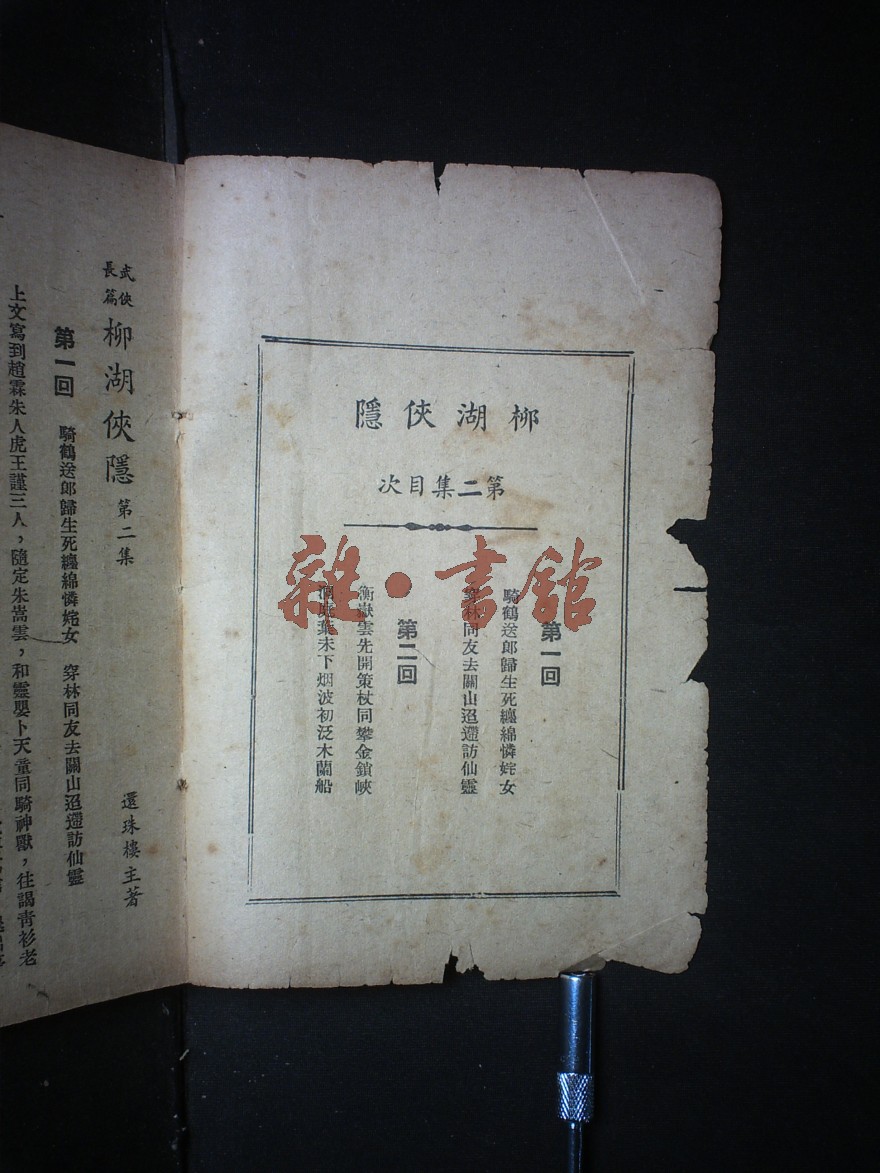 柳湖俠隱
第二集目次
第一回
騎鶴送郎歸生死纏綿憐姹女
穿林同友去關山迢遞訪仙靈
第二回
衡嶽雲先開策杖同攀金鎖峽
洞庭葉未下烟波初泛木蘭船
雜·書館
武俠長篇 柳湖俠隱 第二集
還珠樓主著
第一回 騎鶴送郎歸生死纏綿憐姹女 穿林同友去關山迢遞訪仙靈
上文寫到趙霖朱人虎王謹三人，隨定朱嵩雲，和靈嬰卜天童同騎神獸，往謁青衫老